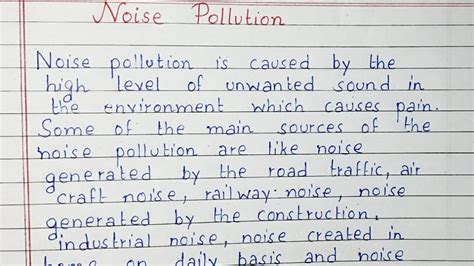 Noise Pollution
Noise pollution is caused by the
high level of unwanted sound in
the environment which causes pain.
Some of the main sources of the
noise pollution are like noise
generated by the road traffic, air
craft noise, railway noise, noise
generated by the construction,
industrial noise, noise created in
on daily basis and noise